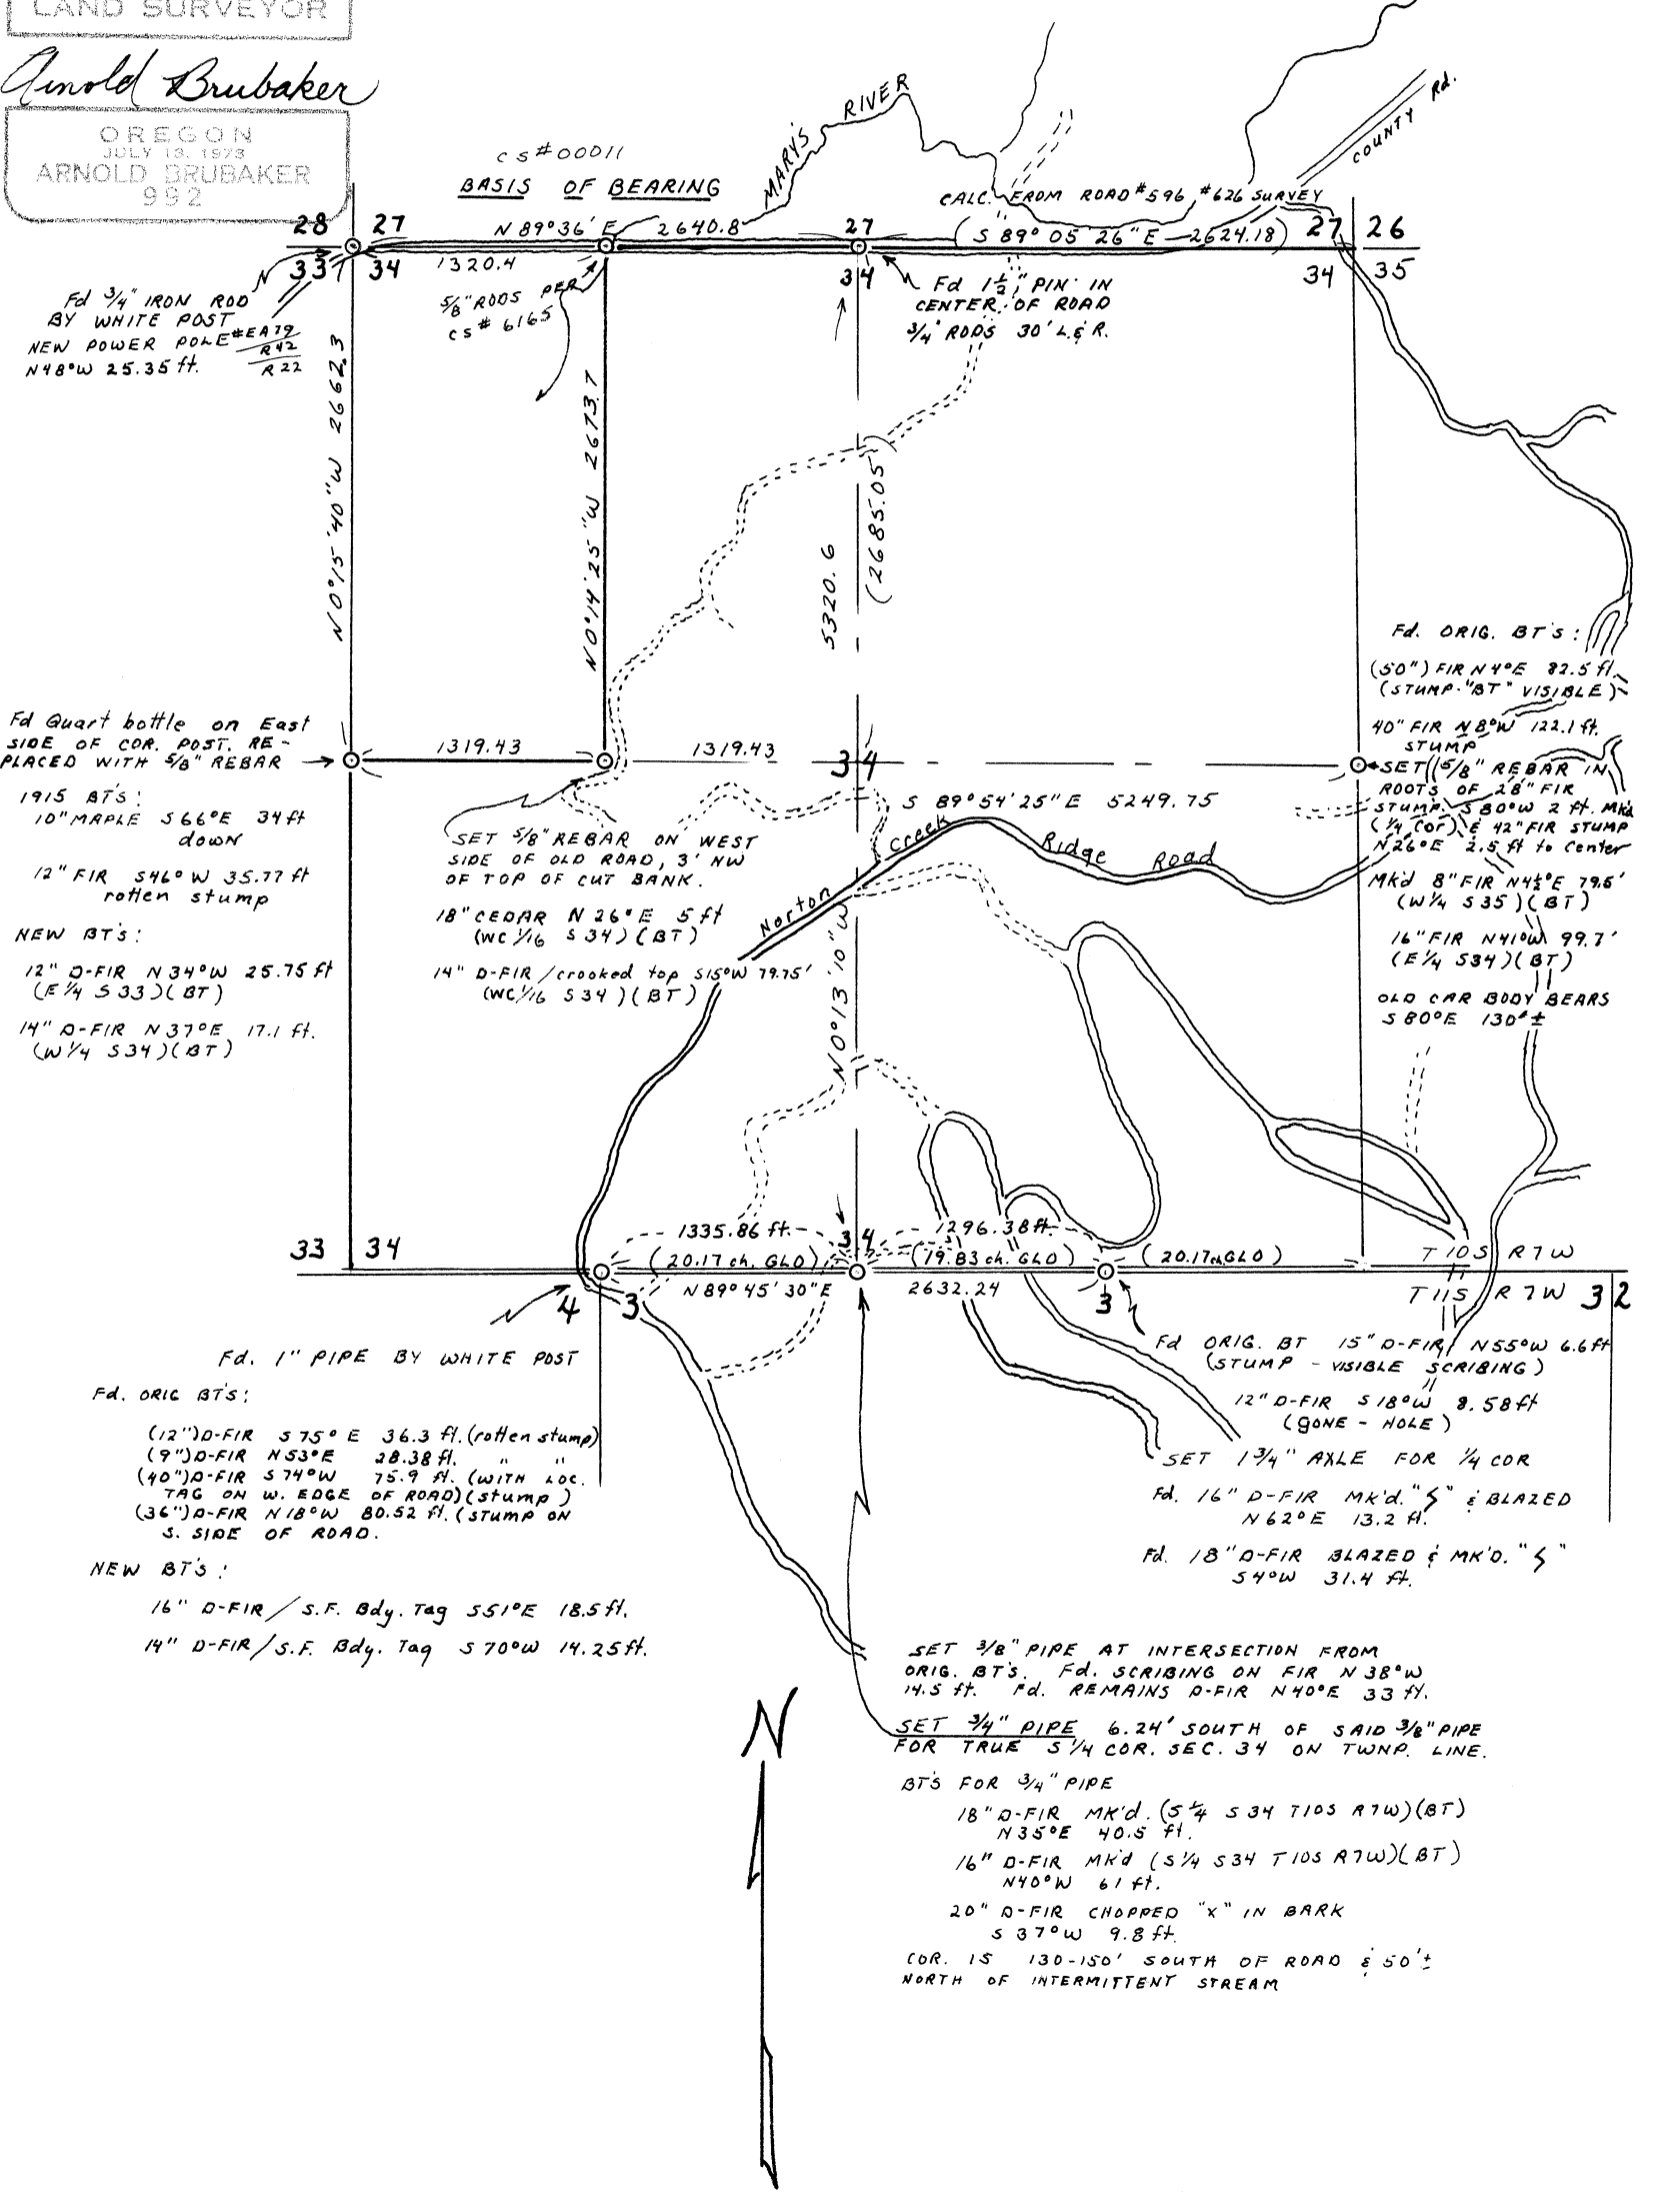 LAND SURVEYOR
Arnold Brubaker
OREGON
JULY 13, 1973
ARNOLD BRUBAKER
992
CS#00011
BASIS OF BEARING
N 89°36' E 2640.8
1320.4
MARYS RIVER
COUNTY Rd.
CALC. FROM ROAD #596, #626 SURVEY
(S 89° 05 26" E — 2624.18)
28 27
33 34
27
34
27 26
34 35
Fd 3/4" IRON ROD
BY WHITE POST
NEW POWER POLE #EA79
R42
R22
N48°W 25.35 ft.
5/8" RODS PER
CS# 6165
Fd 1 1/2" PIN IN
CENTER OF ROAD
3/4" RODS 30' L & R.
N0°15'40"W 2662.3
N0°14'25"W 2673.7
5320.6
(2685.05)
N0°13'10"W
Fd. ORIG. BT'S:
(50") FIR N4°E 82.5 ft.
(STUMP-"BT" VISIBLE)
40" FIR N8°W 122.1 ft.
STUMP
SET 5/8" REBAR IN
ROOTS OF 28" FIR
STUMP. S80°W 2 ft. Mkd
(1/4 Cor) & 42" FIR STUMP
N26°E 2.5 ft to center
Mkd 8" FIR N4 1/2°E 79.5'
(W1/4 S35)(BT)
16" FIR N41°W 99.7'
(E1/4 S34)(BT)
OLD CAR BODY BEARS
S80°E 130'±
Fd Quart bottle on East
SIDE OF COR. POST. RE-
PLACED WITH 5/8" REBAR
1915 BT'S:
10" MAPLE S66°E 34 ft
down
12" FIR S46°W 35.77 ft
rotten stump
NEW BT'S:
12" D-FIR N34°W 25.75 ft
(E1/4 S33)(BT)
14" D-FIR N37°E 17.1 ft.
(W1/4 S34)(BT)
1319.43
1319.43
34
S 89°54'25"E 5249.75
SET 5/8" REBAR ON WEST
SIDE OF OLD ROAD, 3' NW
OF TOP OF CUT BANK.
18" CEDAR N 26°E 5 ft
(WC 1/16 S34)(BT)
14" D-FIR/crooked top S15°W 79.75'
(WC 1/16 S34)(BT)
Norton Creek Ridge Road
33 34
1335.86 ft.
34
1296.38 ft.
(20.17 ch. GLO)
(19.83 ch. GLO)
(20.17 ch GLO)
N 89°45'30"E
2632.24
T10S R7W
T11S R7W
4 3
3
3 2
Fd. 1" PIPE BY WHITE POST
Fd. ORIG BT'S:
(12") D-FIR S75°E 36.3 ft. (rotten stump)
(9") D-FIR N53°E 28.38 ft. " "
(40") D-FIR S74°W 75.9 ft. (WITH LOC.
TAG ON W. EDGE OF ROAD) (stump)
(36") D-FIR N18°W 80.52 ft. (STUMP ON
S. SIDE OF ROAD.
NEW BT'S:
16" D-FIR/S.F. Bdy. Tag S51°E 18.5 ft.
14" D-FIR/S.F. Bdy. Tag S70°W 14.25 ft.
Fd ORIG. BT 15" D-FIR N55°W 6.6 ft
(STUMP - VISIBLE SCRIBING)
12" D-FIR S18°W 8.58 ft
(GONE - HOLE)
SET 1 3/4" AXLE FOR 1/4 COR
Fd. 16" D-FIR MK'd. "S" & BLAZED
N62°E 13.2 ft.
Fd. 18" D-FIR BLAZED & MK'D. "S"
S4°W 31.4 ft.
SET 3/8" PIPE AT INTERSECTION FROM
ORIG. BT'S. Fd. SCRIBING ON FIR N38°W
14.5 ft. Fd. REMAINS D-FIR N40°E 33 ft.
SET 3/4" PIPE 6.24' SOUTH OF SAID 3/8" PIPE
FOR TRUE S 1/4 COR. SEC. 34 ON TWNP. LINE.
BT'S FOR 3/4" PIPE
18" D-FIR MK'd. (S1/4 S34 T10S R7W)(BT)
N35°E 40.5 ft.
16" D-FIR MKd (S1/4 S34 T10S R7W)(BT)
N40°W 61 ft.
20" D-FIR CHOPPED "X" IN BARK
S 37°W 9.8 ft.
COR. IS 130-150' SOUTH OF ROAD & 50'±
NORTH OF INTERMITTENT STREAM
N